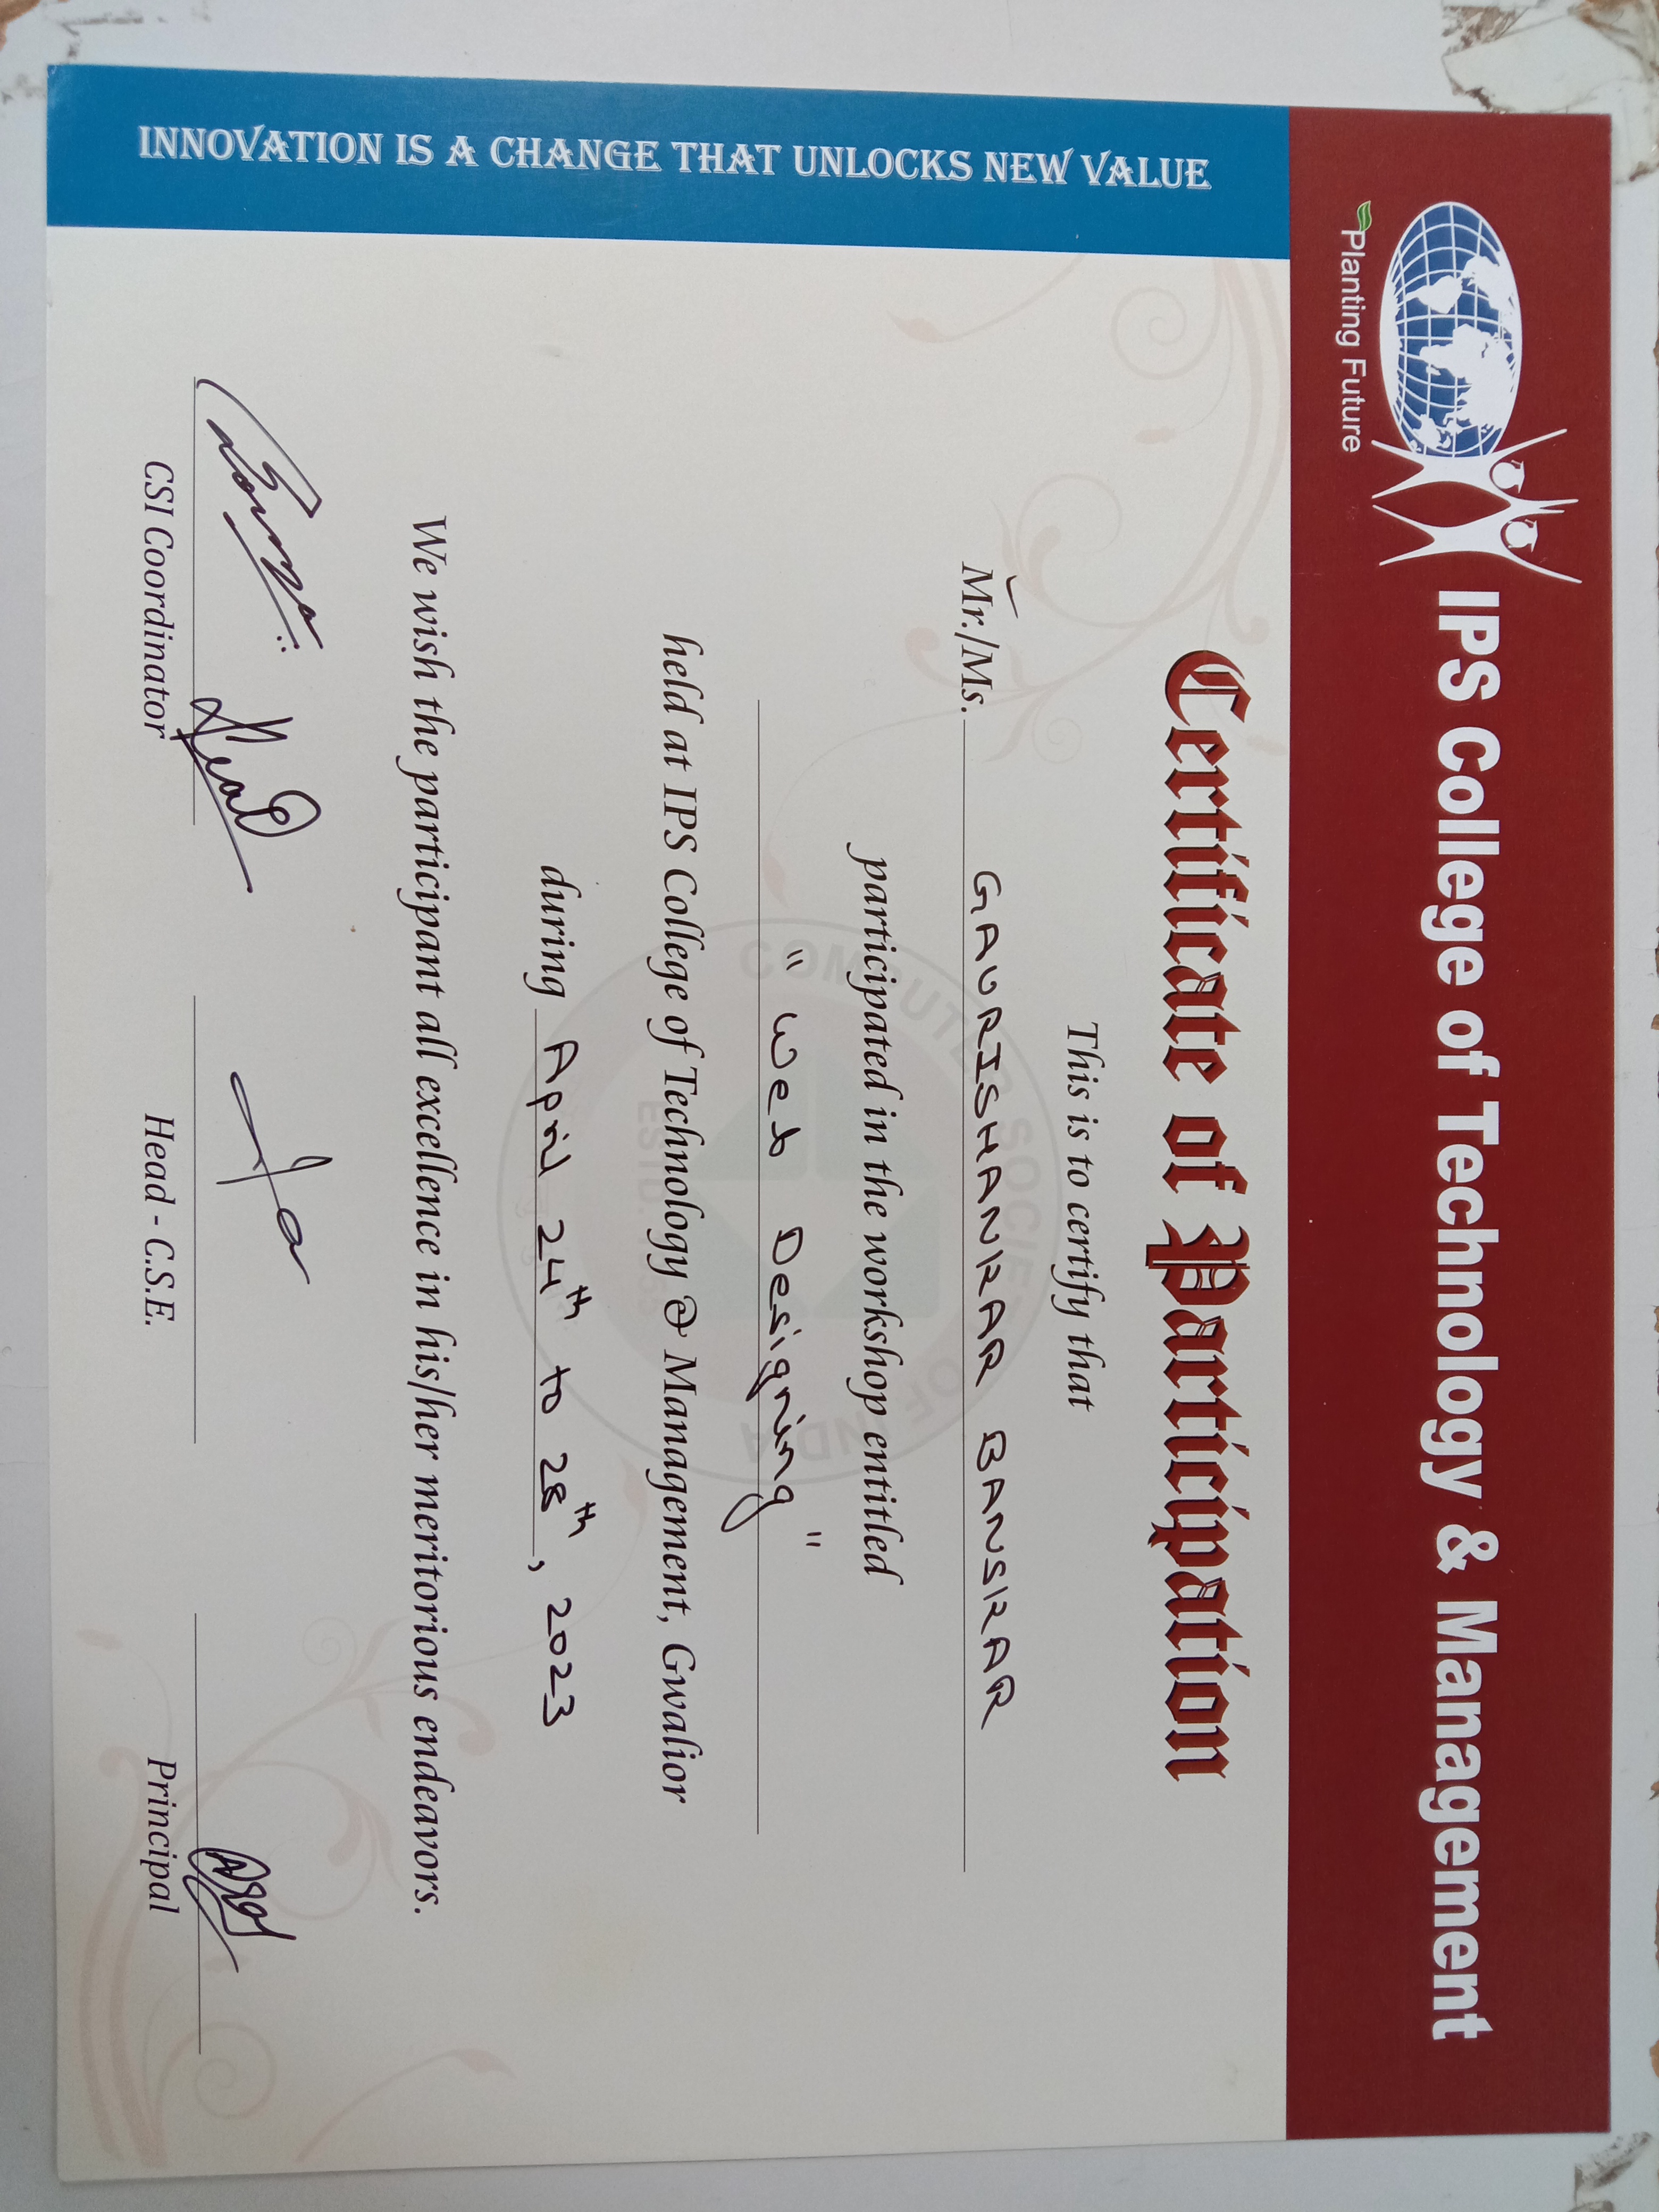 IPS College of Technology & Management
Planting Future
INNOVATION IS A CHANGE THAT UNLOCKS NEW VALUE
Certificate of Participation
This is to certify that
Mr./Ms. GAURISHANKAR BANSKAR
participated in the workshop entitled
" Web Designing "
held at IPS College of Technology & Management, Gwalior
during April 24th to 28th, 2023
We wish the participant all excellence in his/her meritorious endeavors.
CSI Coordinator
Head - C.S.E.
Principal
COMPUTER SOCIETY OF INDIA
ESTD. 1965